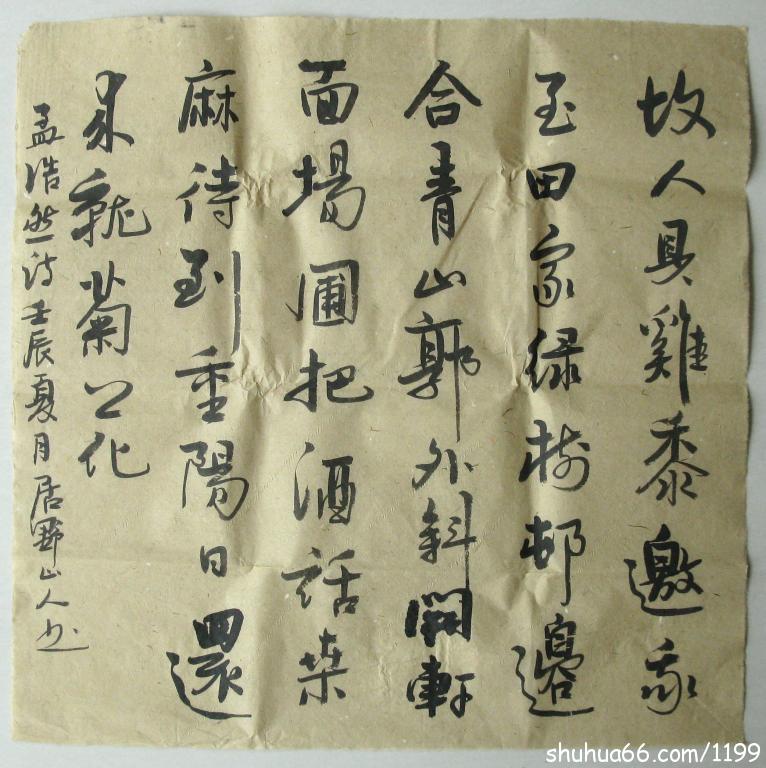 故人具雞黍邀我
至田家绿树邨邊
合青山郭外斜開軒
面場圃把酒話桑
麻待到重陽日還
来就菊花
孟浩然诗壬辰夏月居山人书
shuhua66.com/1199